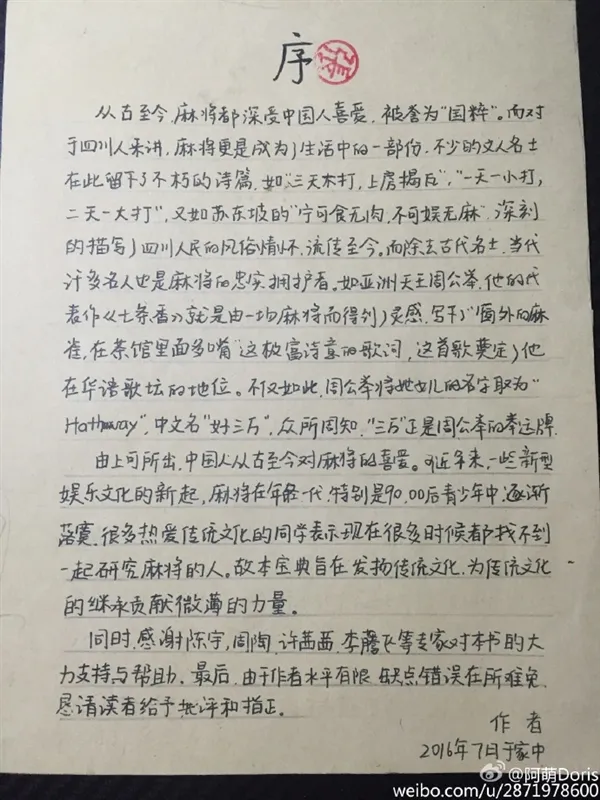 序
从古至今,麻将都深受中国人喜爱,被誉为"国粹"。而对
于四川人来讲,麻将更是成为了生活中的一部份,不少的文人名士
在此留下了不朽的诗篇,如"三天不打,上房揭瓦","一天一小打,
二天一大打",又如苏东坡的"宁可食无肉,不可娱无麻",深刻
的描写了四川人民的风俗情怀,流传至今。而除去古代名士,当代
许多名人也是麻将的忠实拥护者。如亚洲天王周公举,他的代
表作《七条香》就是由一场麻将而得到了灵感,写下了"窗外的麻
雀,在茶馆里面多嘴"这极富诗意的歌词,这首歌奠定了他
在华语歌坛的地位。不仅如此,周公举将她女儿的名字取为"
Hathaway",中文名"好三万",众所周知,"三万"正是周公举的幸运牌.
由上可所出,中国人从古至今对麻将的喜爱。可近年来,一些新型
娱乐文化的新起,麻将在年轻一代,特别是90,00后青少年中,逐渐
落寞,很多热爱传统文化的同学表示现在很多时候都找不到
一起研究麻将的人。故本宝典旨在发扬传统文化,为传统文化
的继承贡献微薄的力量。
同时,感谢陈宇,周陶,许茜茜,李蘑飞等专家对本书的大
力支持与帮助。最后,由于作者水平有限,缺点错误在所难免,
恳请读者给予批评和指正。
作者
2016年7日于家中
@阿萌Doris
weibo.com/u/2871978600